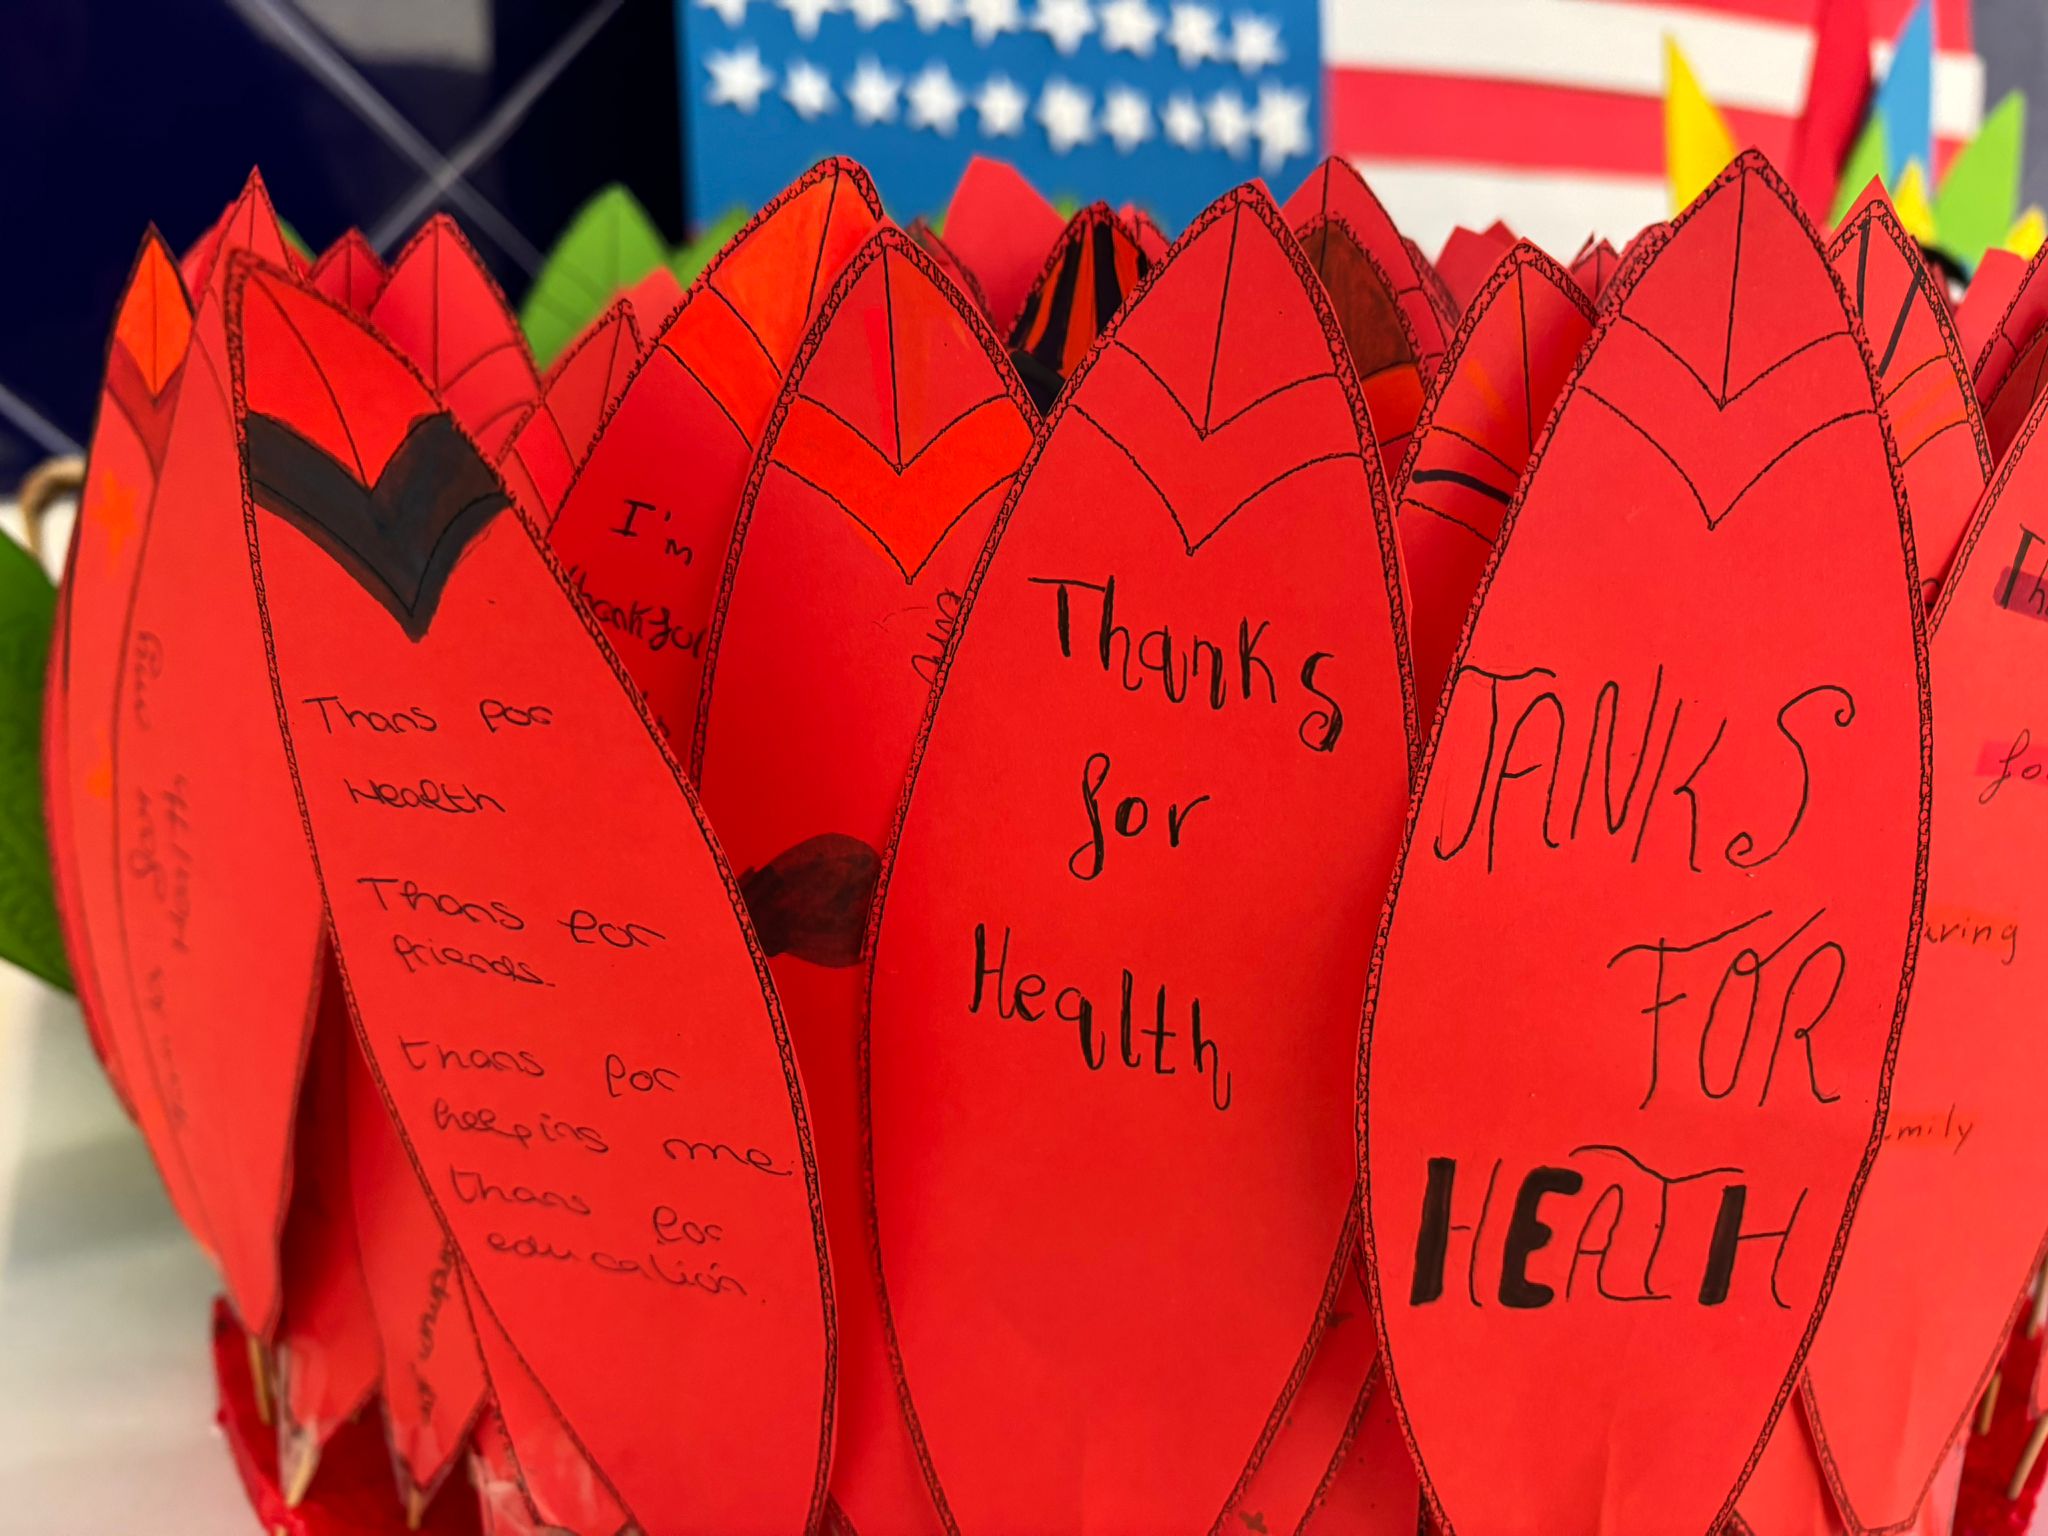 Thans for
Health
Thans for
friends.
thans for
helping me.
thans for
educatión.
I'm
thankful
Thanks
for
Health
TANKS
FOR
HEATH